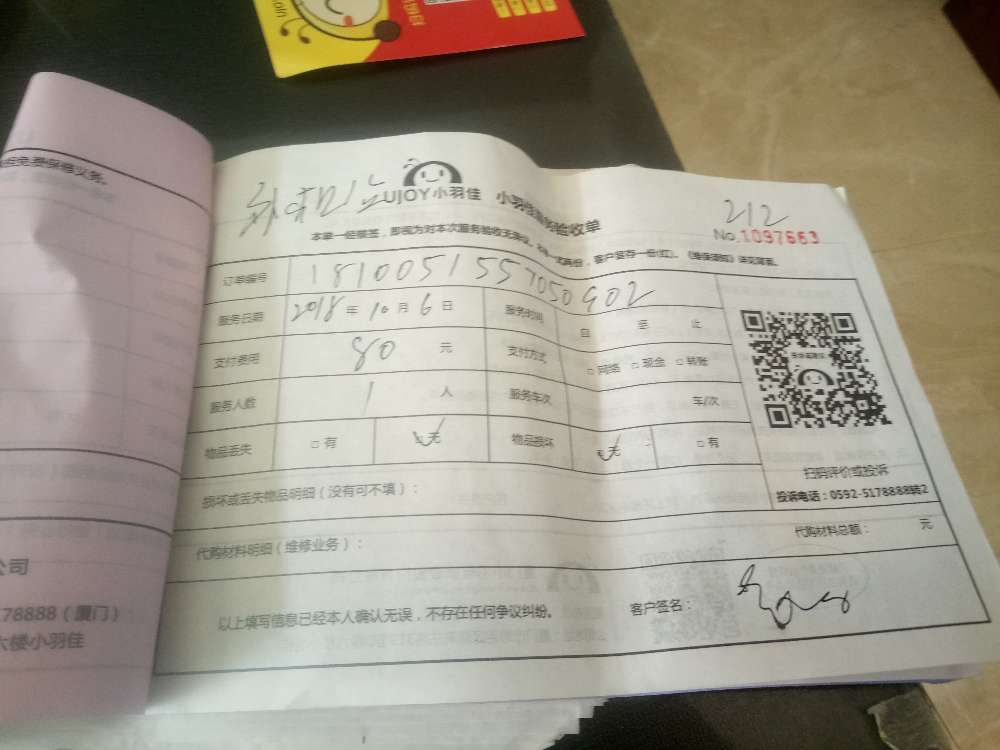 212
UJOY小羽佳 小羽佳服务验收单
No.1097663
本单一经签, 即视为对本次服务验收无异议。本单一式两份, 客户留存一份(红)。
订单编号 1810051557050902
服务日期 2018 年 10 月 6 日 服务时间 自 至 止
支付费用 80 元 支付方式 □ 网络 □ 现金 □ 转账
服务人数 1 人 服务车次 车/次
物品丢失 □ 有 无 物品损坏 无 □ 有
扫码评价或投诉
投诉电话：0592-5178888转2
损坏或丢失物品明细（没有可不填）：
代购材料明细（维修业务）： 代购材料总额： 元
以上填写信息已经本人确认无误，不存在任何争议纠纷。 客户签名：
免费保修义务。
公司
178888（厦门）
六楼小羽佳